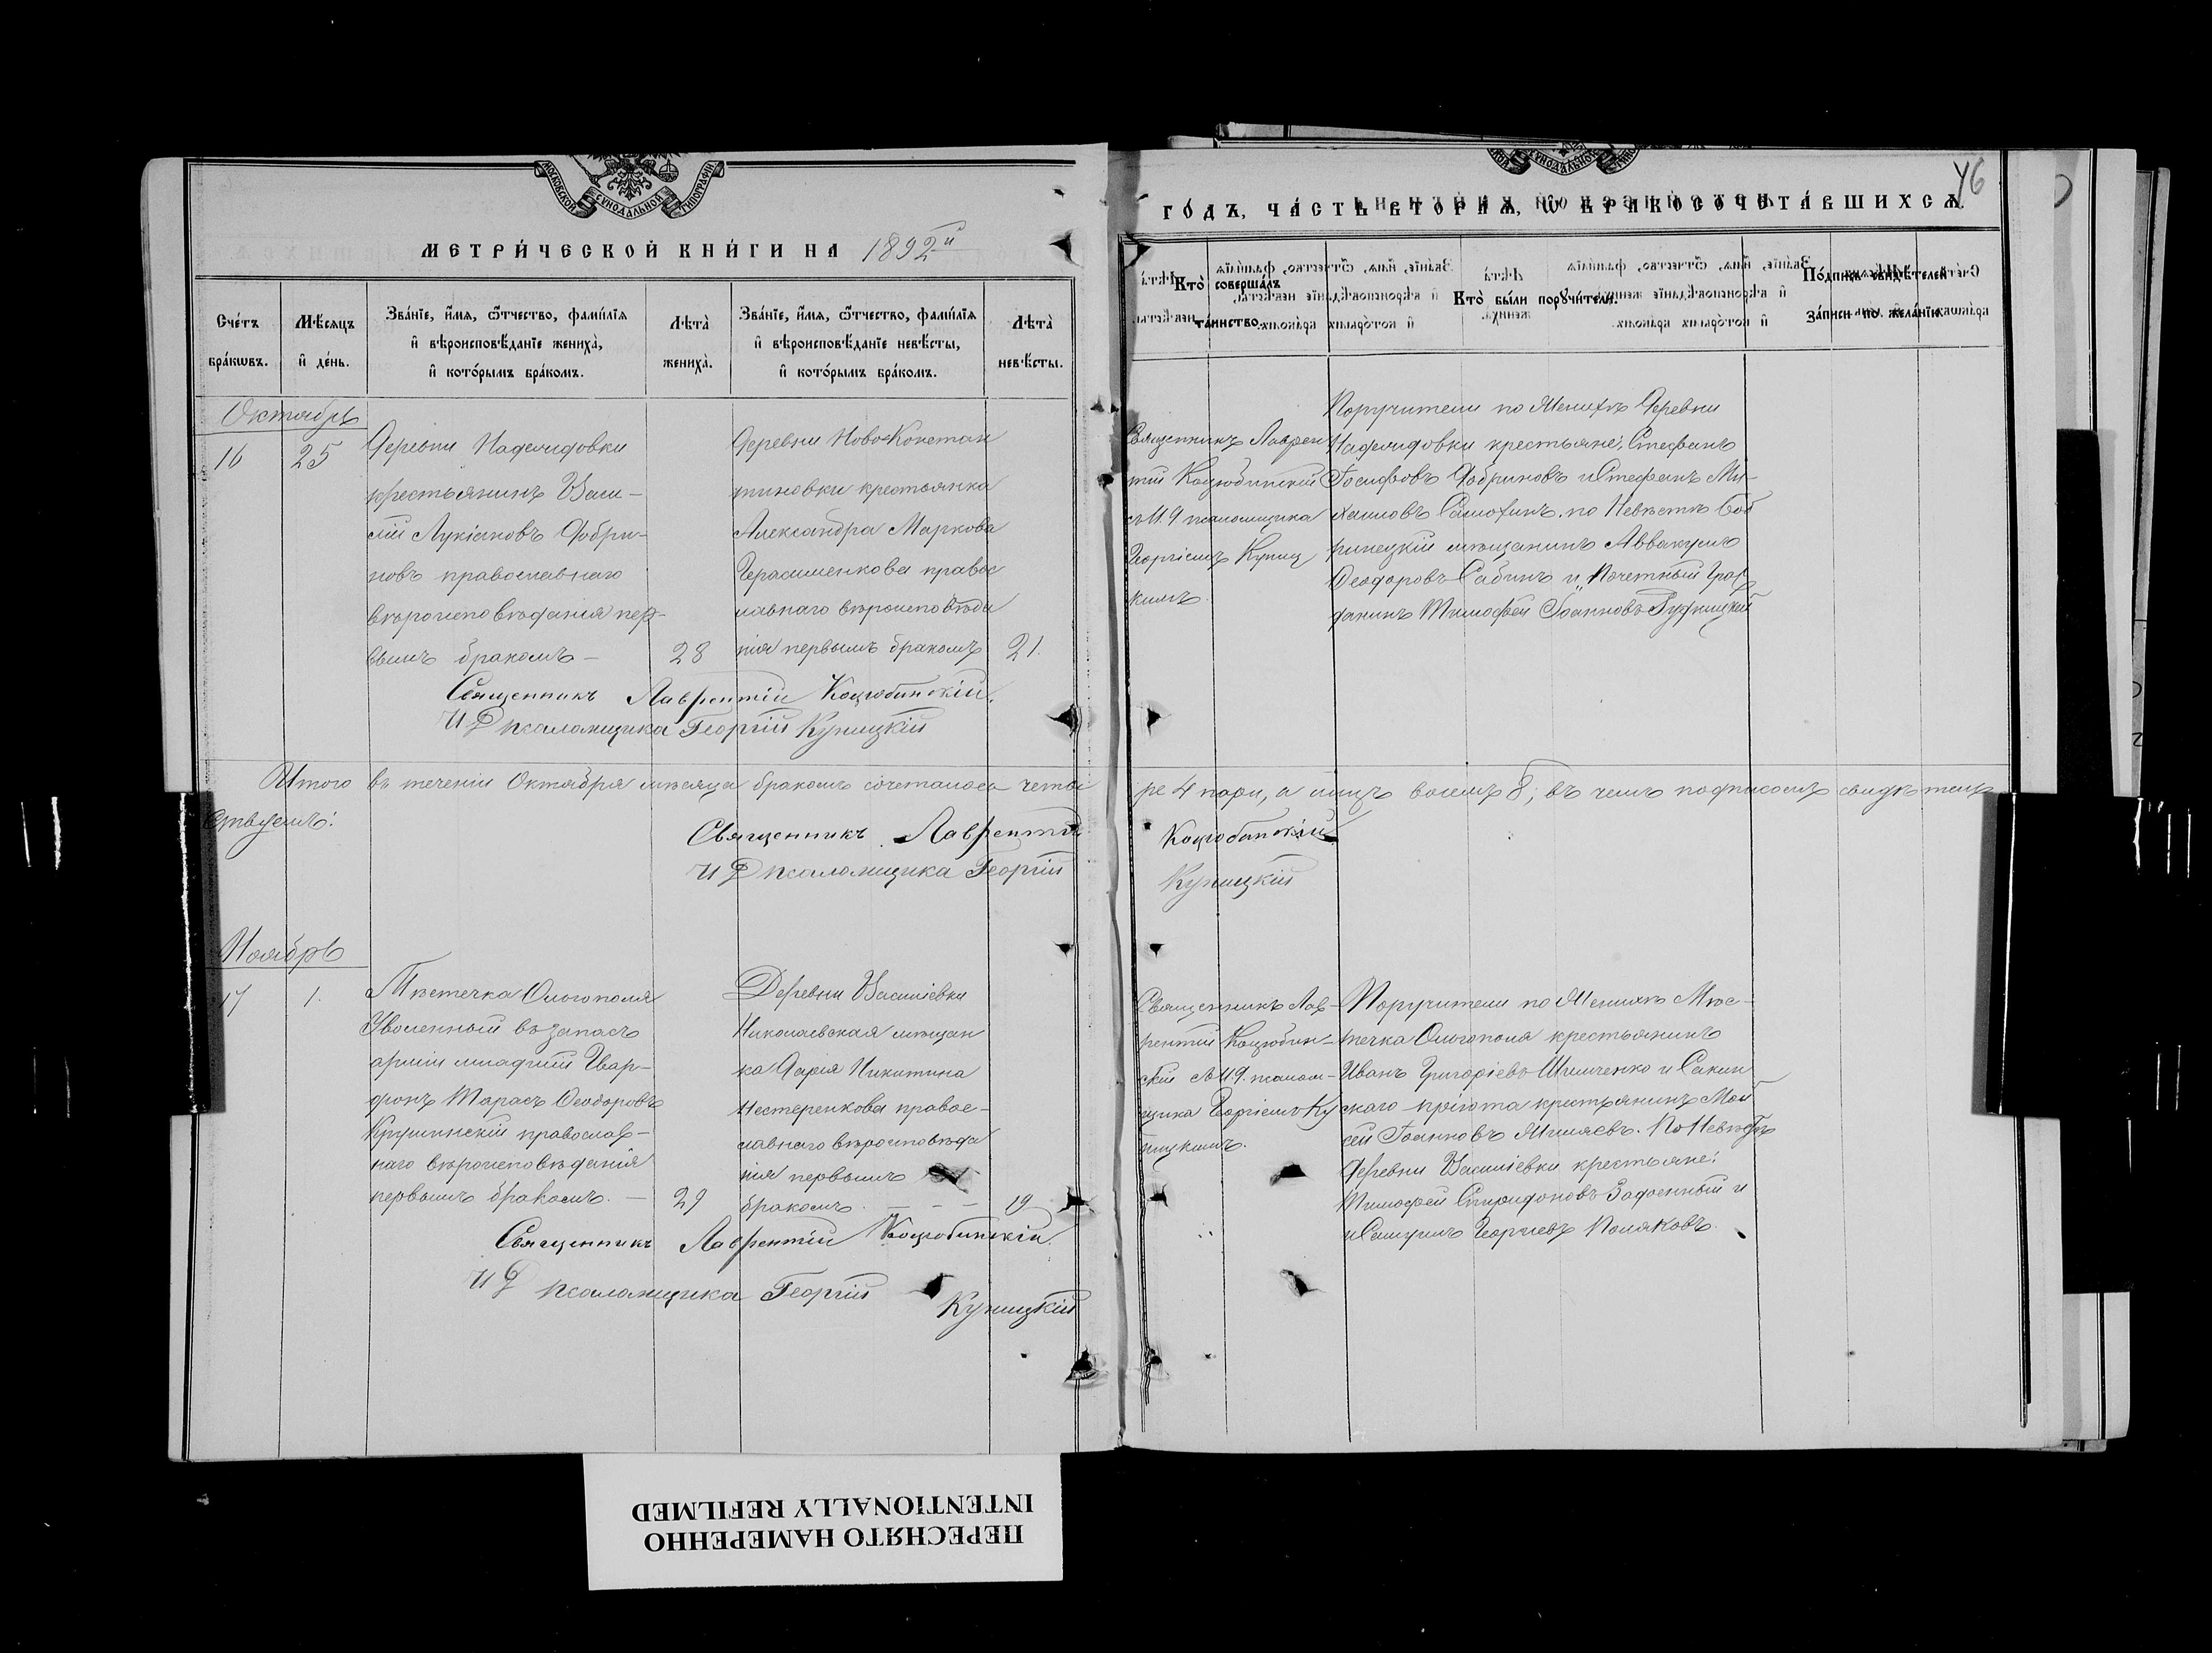 МОСКОВСКОЙ СУНОДАЛЬНОЙ ТИПОГРАФІИ
МЕТРИ́ЧЕСКОЙ КНИ́ГИ НА 1892й
Сче́тъ бра́кѡвъ.
Мѣ́сяцъ и҆ де́нь.
Зва́нїе, и҆́мѧ, ѻ҆́тчество, фами́лїѧ и҆ вѣроисповѣ́данїе женихà, и҆ кото́рымъ бра́комъ.
Лѣта̀ женихà.
Зва́нїе, и҆́мѧ, ѻ҆́тчество, фами́лїѧ и҆ вѣроисповѣ́данїе невѣ́сты, и҆ кото́рымъ бра́комъ.
Лѣта̀ невѣ́сты.
Октябрь
16
25
Деревни Надеждовки
крестьянинъ Васи-
лій Лукіановъ Добри-
новъ православнаго
вѣроисповѣданія пер-
вымъ бракомъ –
28
Деревни НовоКонстан
тиновки крестьянка
Александра Маркова
Герасименкова правос
лавнаго вѣроисповѣда
нія первымъ бракомъ
21.
Священникъ Лаврентій Коцюбинскій.
И Д псаломщика Георгій Куницкій
Итого въ теченіи Октября мѣсяца бракомъ сочеталось четы
ствуемъ:
Священникъ Лаврентій
И Д псаломщика Георгій
Ноябрь
17
1.
Мѣстечка Ольгополя
Уволенный въ запасъ
арміи младшій
Тарасъ Ѳеодоровъ
Крушинскій православ-
наго вѣроисповѣданія
первымъ бракомъ. –
29
Деревни Василіевки
Николаевская мѣщан
ка Дарія Никитина
Нестеренкова правос-
лавнаго вѣроисповѣда
нія первымъ
бракомъ. – – –
19
Священникъ Лаврентій Коцюбинскій.
И Д псаломщика Георгій
Куницкій
ГО́ДЪ, ЧА́СТЬ ВТОРА́Ѧ, Ѡ҆ БРАКОСОЧЕТА́ВШИХСѦ.
46
Кто̀ соверша́лъ та́инство.
Кто̀ бы́ли порꙋчи́тели.
По́дпись свидѣ́телей за́писи по жела́нїю.
Священникъ Лаврен
тій Коцюбинскій
съ И. Д псаломщика
Георгіемъ Куниц
кимъ.
Поручители по Женихѣ Деревни
Надеждовки крестьяне: Стефанъ
Іосифовъ Добриновъ и Стефанъ Ми-
хаиловъ Самохинъ. по Невѣстѣ Боб
ринецкій мѣщанинъ Аввакумъ
Ѳеодоровъ Сабинъ и Почетный Граж
данинъ Тимофей Іоанновъ
ре 4 пари, а лицъ восемь 8; въ чемъ подписомъ свидѣтель
Коцюбинскій
Куницкій
Священникъ Лав-
рентій Коцюбин-
скій съ И.Д. псалом-
щика Георгіемъ Ку
ницкимъ.
Поручители по Женихѣ Мѣс-
течка Ольгополя крестьянинъ
Иванъ Григоріевъ Шимченко и
скаго пріюта крестьянинъ Мои
сей Іоанновъ По Невѣстѣ
Деревни Василіевки крестьяне:
Тимофей Спиридоновъ и
и Самуилъ Георгіевъ Поляковъ.
ПЕРЕСНЯТО НАМЕРЕННО
INTENTIONALLY REFILMED